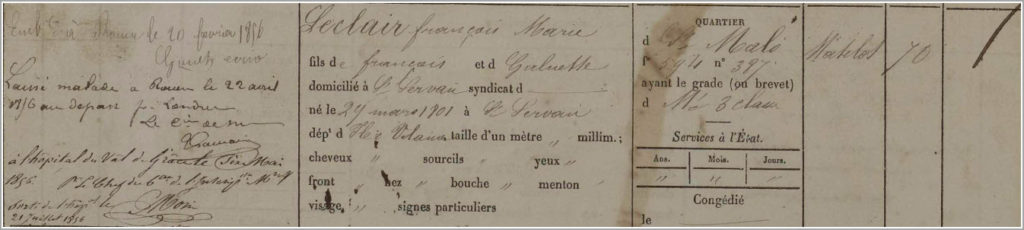 à Rouen le 20 février 1856
Laissé malade a Rouen le 22 avril
1856 au depart pr Londres
Le Cre de
à l'hôpital du Val de Grâce le Mai
1856 Pr Le Chef du de l'Inscripon Mme
Sorti de l'hôpal le
21 Juillet 1856
Leclair françois Marie
fils de françois et d
domicilié à St Servan syndicat d
né le 29 mars 1801 à St Servan
dépt d Ile Vilaine taille d'un mètre „ millim.;
cheveux „ sourcils „ yeux „
front „ nez „ bouche „ menton „
visage „ signes particuliers
QUARTIER
d St Malo
fo n° 397
ayant le grade (ou brevet)
d Mt 3 classe
Services à l'État.
Ans. Mois. Jours.
„ „ „
Congédié
le
Matelot
70
1